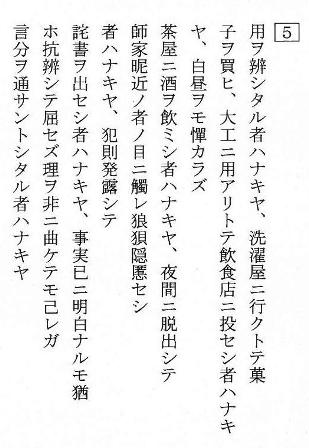 5
用ヲ辨シタル者ハナキヤ、洗濯屋ニ行クトテ菓
子ヲ買ヒ、大工ニ用アリトテ飲食店ニ投セシ者ハナキ
ヤ、白昼ヲモ憚カラズ
茶屋ニ酒ヲ飲ミシ者ハナキヤ、夜間ニ脱出シテ
師家昵近ノ者ノ目ニ觸レ狼狽隠慝セシ
者ハナキヤ、犯則発露シテ
詫書ヲ出セシ者ハナキヤ、事実已ニ明白ナルモ猶
ホ抗辨シテ屈セズ理ヲ非ニ曲ケテモ己レガ
言分ヲ通サントシタル者ハナキヤ